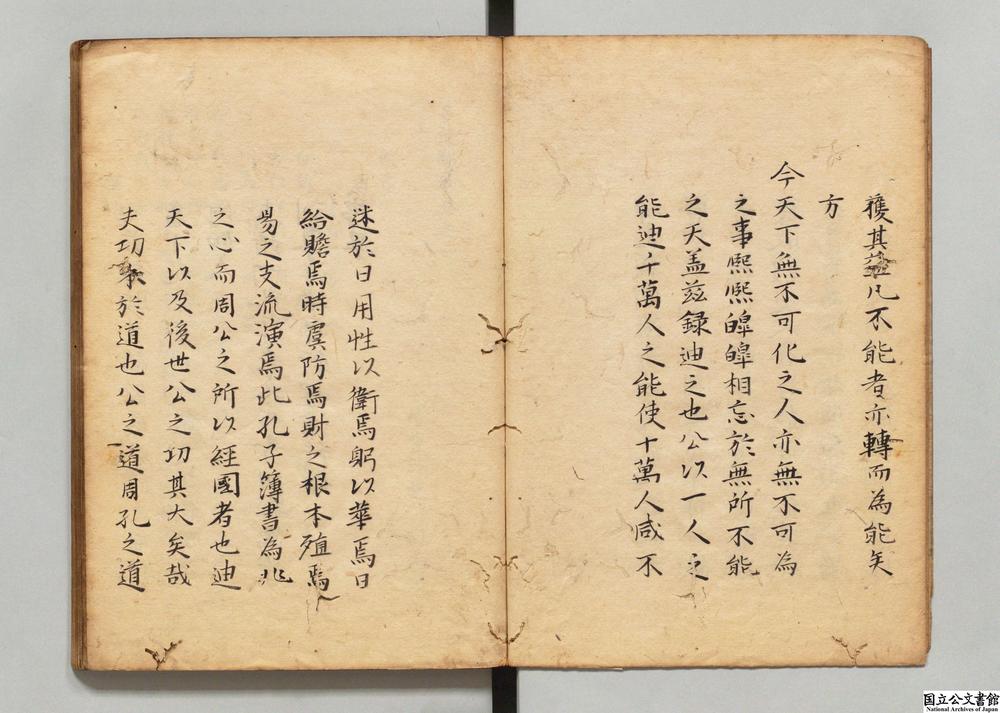 獲其益凡不能者亦轉而為能矣
方
今天下無不可化之人亦無不可為
之事熙熙皥皥相忘於無所不能
之天蓋茲録迪之也公以一人之
能迪千萬人之能使十萬人咸不
迷於日用性以衛焉躬以華焉日
給贍焉時虞防焉財之根本殖焉
易之支流演焉此孔子簿書為兆
之心而周公之所以經國者也迪
天下以及後世公之功其大矣哉
夫功本於道也公之道周孔之道
国立公文書館
National Archives of Japan